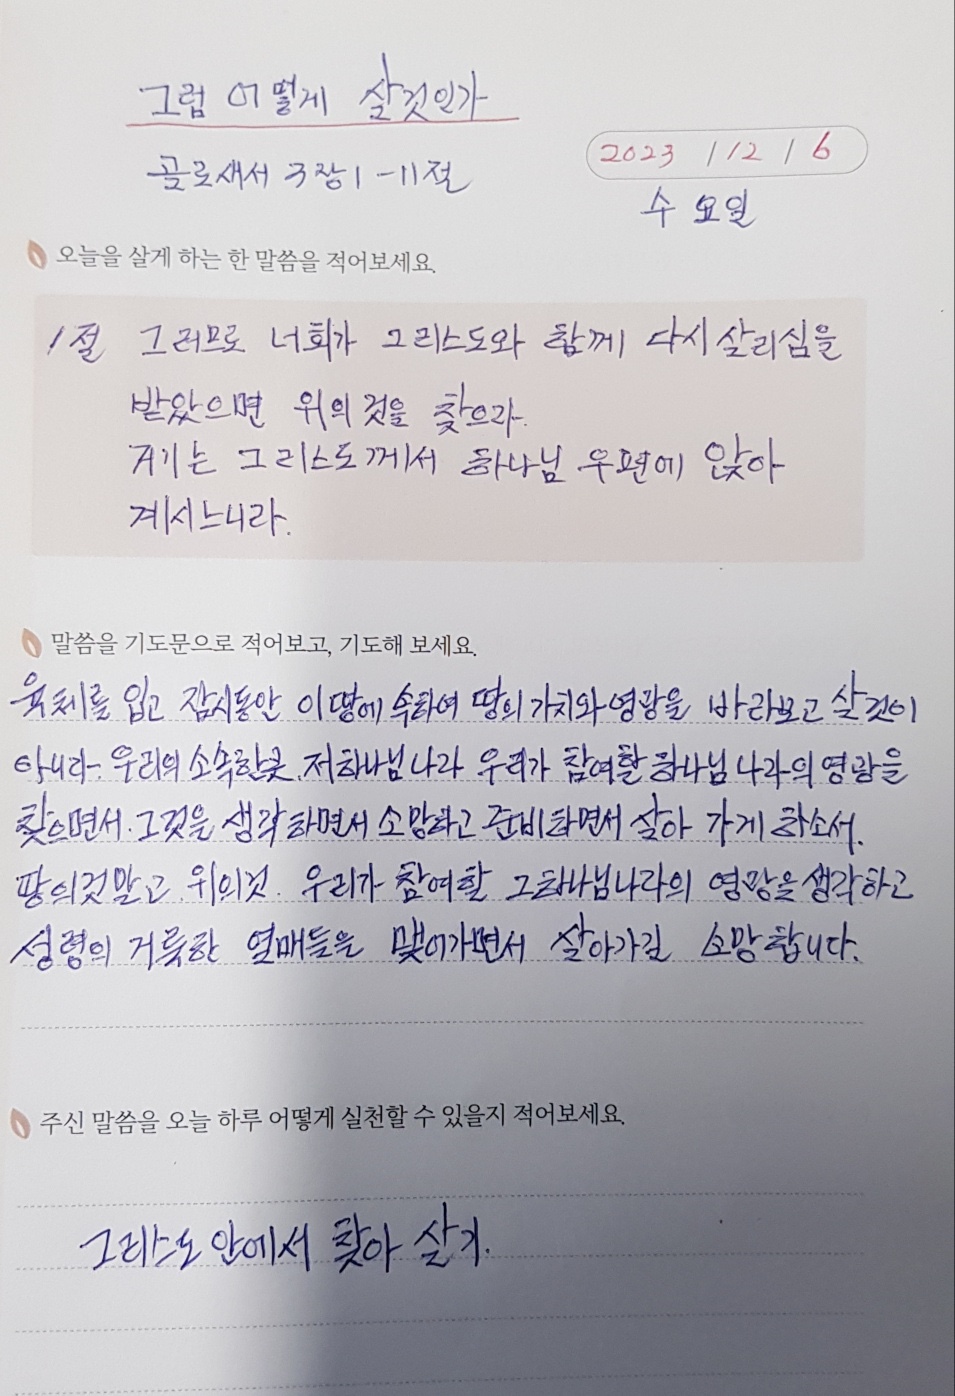 그럼 어떻게 살것인가
골로새서 3장1-11절
2023 / 12 / 6
수요일
오늘을 살게 하는 한 말씀을 적어보세요.
1절 그러므로 너희가 그리스도와 함께 다시 살리심을
받았으면 위의 것을 찾으라.
거기는 그리스도께서 하나님 우편에 앉아
계시느니라.
말씀을 기도문으로 적어보고, 기도해 보세요.
육체를 입고 잠시동안 이 땅에 속하여 땅의 가치와 영광을 바라보고 살것이
아니라. 우리의 소속한곳, 저하나님 나라 우리가 참여할 하나님 나라의 영광을
찾으면서. 그것을 생각하면서 소망하고 준비하면서 살아 가게 하소서.
땅의것말고. 위의것. 우리가 참여할 그하나님나라의 영광을 생각하고
성령의 거룩한 열매들을 맺어가면서 살아가길 소망합니다.
주신 말씀을 오늘 하루 어떻게 실천할 수 있을지 적어보세요.
그리스도 안에서 찾아 살기.